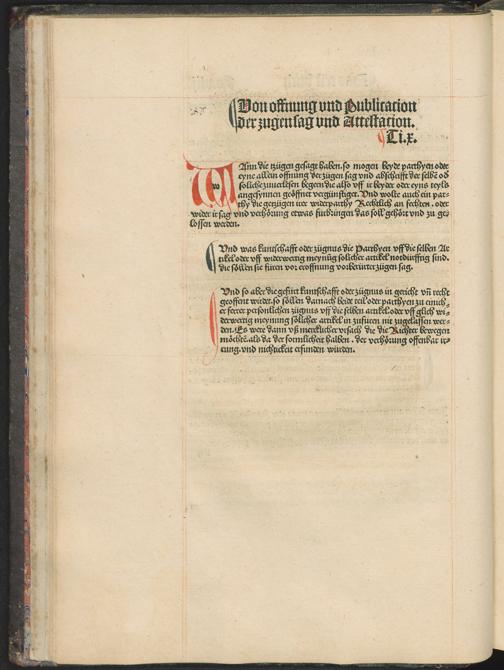 Von offnung vnd Publication
der zugen sag vnd Attestation.
Ti.x.
WAnn die zügen gesagt haben. so mogen beyde parthyen oder
eyne allein offnung der zügen sag vnd abschrifft der selbē od
solichs zuuerlesen begern die also vff ir beyder oder eyns teyls
angesynnen geöffnet vergünstiget. Vnd wolte auch ein par-
thy die gezügen irer widerparthy Rechtlich an fechten. oder
wider ir sag vnd verhörung etwas fürbringen das soll gehört vnd zu ge-
lossen werden.
Vnd was kuntschafft oder zügnus die Parthyen vff die selben Ar
tikel oder vff widerwertig meynūg solicher artikel notdürfftig sind.
die söllen sie füren vor eroffnung vorberürter zügen sag.
Vnd so aber die gefürt kuntschafft oder zügnus in gericht vn̄ recht
geoffent wirdet. so söllen darnach beide teil oder parthyen zu einich-
er ferrer personlichen zügnus vff die selben artikel oder vff glich wi-
derwertig meynung sölicher artikel in zufüren nit zugelassen wer-
den. Es were dann vß mercklicher vrsach die die Richter bewegen
möcht. als da der formlicheit halben. der verhörung offenbar ir-
rung. vnd nichtickeit erfunden würden.